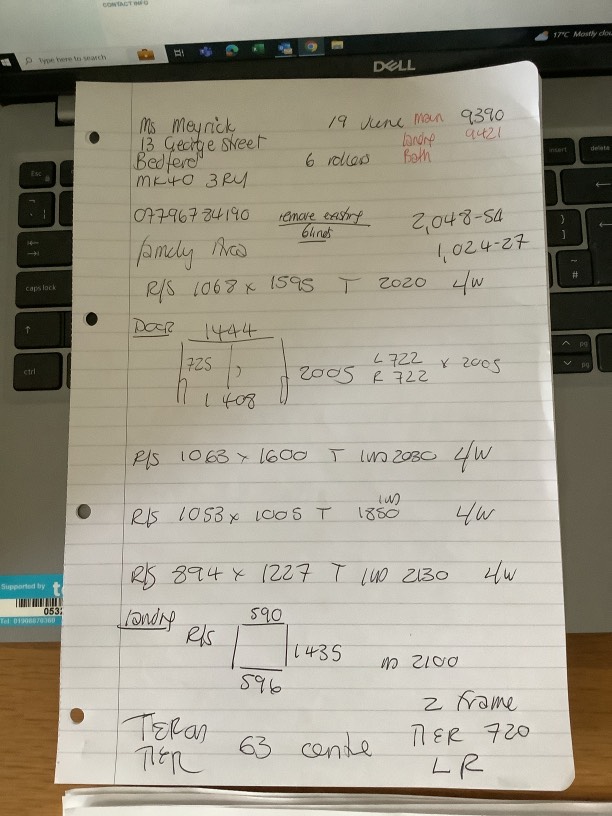 CONTACT INFO
Type here to search
17°C Mostly clou
DELL
Esc
insert
delete
caps lock
ctrl
Ms Meyrick 19 June main 9390
13 George Street landry 9421
Bedford 6 rollers Bath
MK40 3RY
07796784190 remove existing 2,048-54
blinds 1,024-27
family
R/S 1068 x 1595 T 2020 4/W
Door 1444
725 2005 L 722 x 2005
R 722
1408
R/S 1063 x 1600 T 2030 4/W
R/S 1053 x 1005 T 1850 4/W
R/S 894 x 1227 T 2130 4/W
landry 590
R/S 1435 2100
596
2 frame
TIER on TIER 63 centre TIER 720
LR
Supported by
053
Tel: 01908